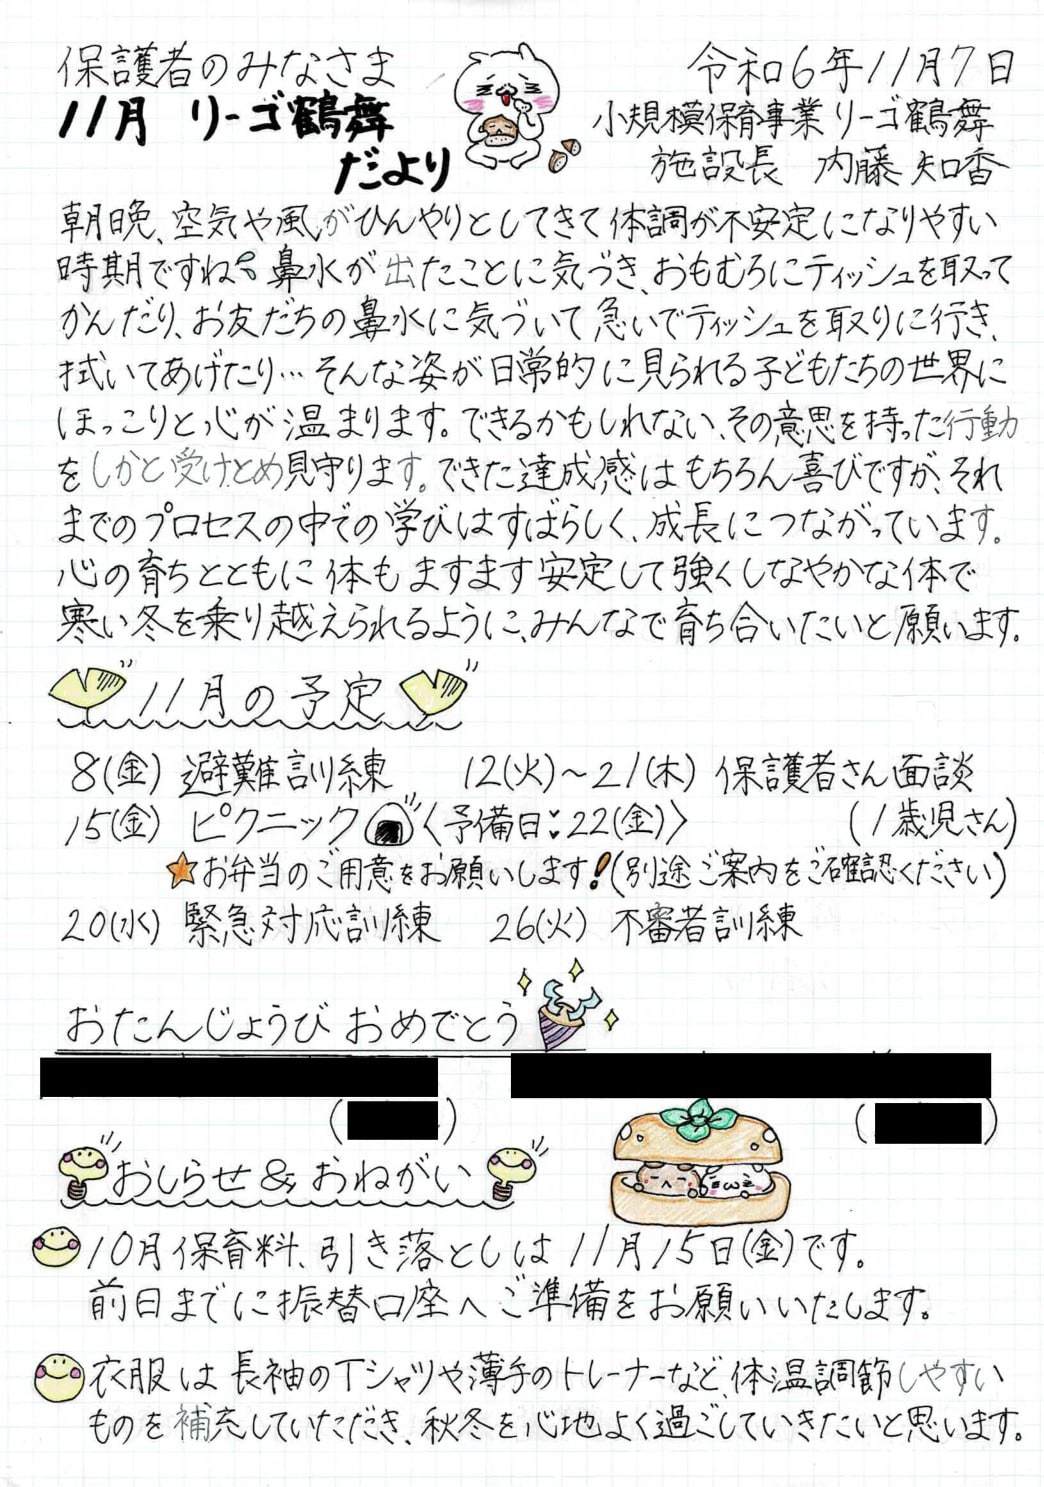 保護者のみなさま
令和6年11月7日
11月 リーゴ鶴舞
だより
小規模保育事業 リーゴ鶴舞
施設長 内藤 知香
朝晩、空気や風がひんやりとしてきて体調が不安定になりやすい
時期ですね 鼻水が出たことに気づき、おもむろにティッシュを取って
かんだり、お友だちの鼻水に気づいて急いでティッシュを取りに行き、
拭いてあげたり…そんな姿が日常的に見られる子どもたちの世界に
ほっこりと心が温まります。できるかもしれない、その意思を持った行動
をしかと受けとめ見守ります。できた達成感はもちろん喜びですが、それ
までのプロセスの中での学びはすばらしく、成長につながっています。
心の育ちとともに体もますます安定して強くしなやかな体で
寒い冬を乗り越えられるように、みんなで育ち合いたいと願います。
11月の予定
8(金) 避難訓練 12(火)～21(木) 保護者さん面談
15(金) ピクニック〈予備日:22(金)〉 (1歳児さん)
★お弁当のご用意をお願いします!(別途ご案内をご確認ください)
20(水) 緊急対応訓練 26(火) 不審者訓練
おたんじょうび おめでとう
おしらせ&おねがい
10月保育料、引き落としは11月15日(金)です。
前日までに振替口座へご準備をお願いいたします。
衣服は長袖のTシャツや薄手のトレーナーなど、体温調節しやすい
ものを補充していただき、秋冬を心地よく過ごしていきたいと思います。